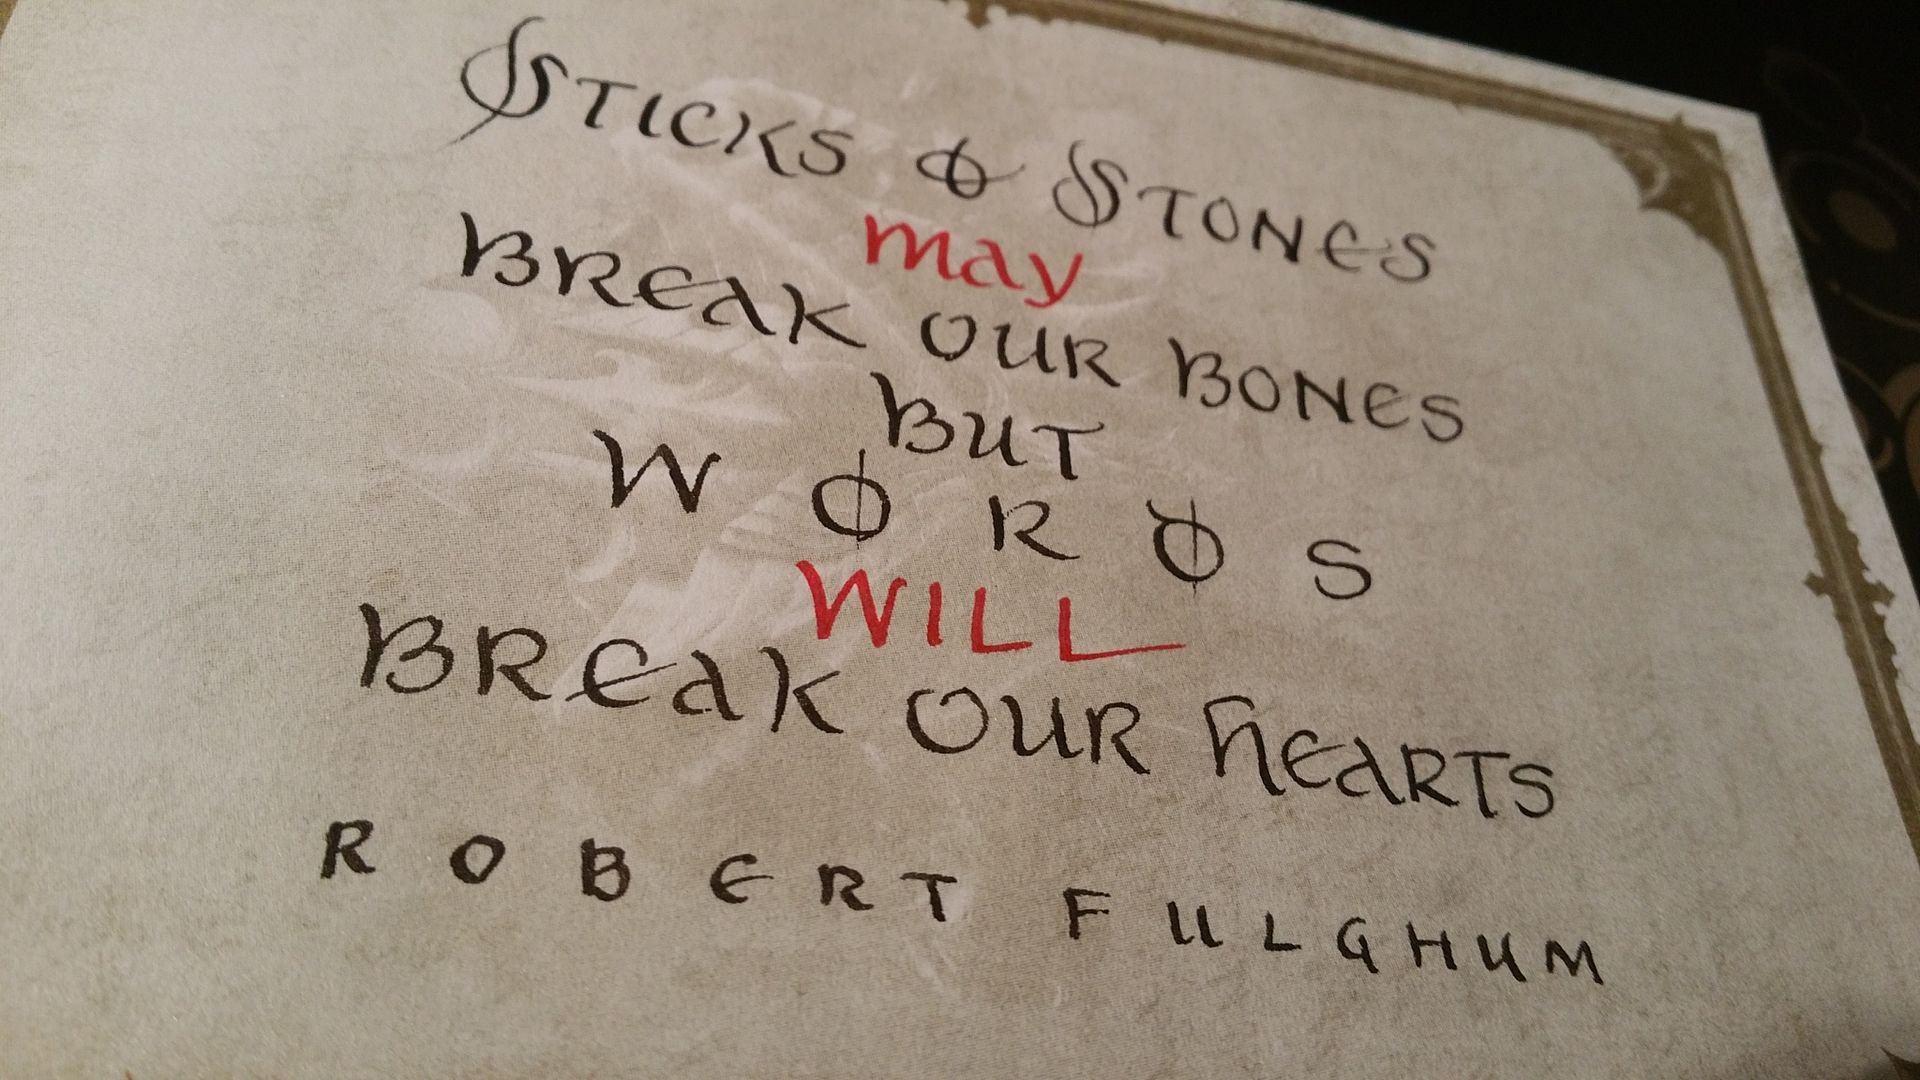 STICKS & STONES
may
BREAK OUR BONES
BUT
WORDS
WILL
BREAK OUR HEARTS
ROBERT FULGHUM